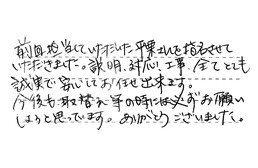 前回担当していただいた平栗さんを指名させて
いただきました。説明、対応、工事、全てとても
誠実で安心してお任せ出来ます。
今後も取替え等の時には必ずお願い
しようと思っています。ありがとうございました。